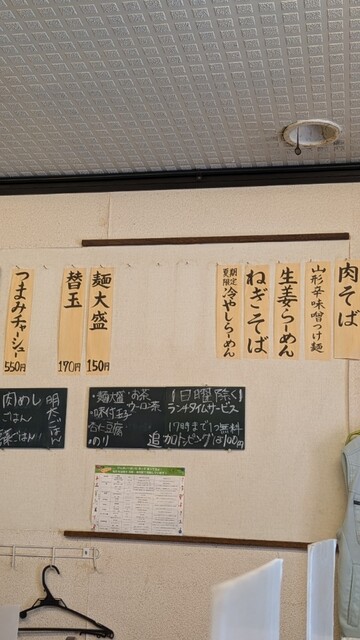 肉そば
山形辛味噌つけ麺
生姜らーめん
ねぎそば
夏期限定 冷やしらーめん
麺大盛 150円
替玉 170円
つまみチャーシュー 550円
(日曜除く)
ランチタイムサービス
17時まで1つ無料
追加トッピングは100円
・麺大盛
・お茶
ウーロン茶
・味付玉子
・杏仁豆腐
・のり
明太ごはん
肉めし
ごはん
ごはん